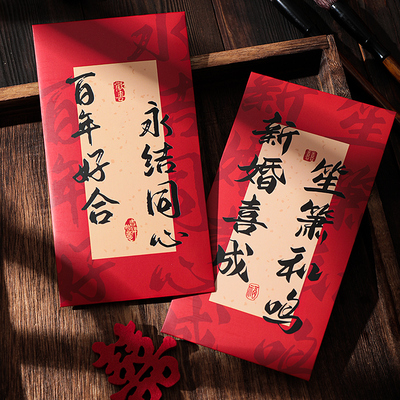 永结同心
百年好合
笙箫和鸣
新婚喜成
囍